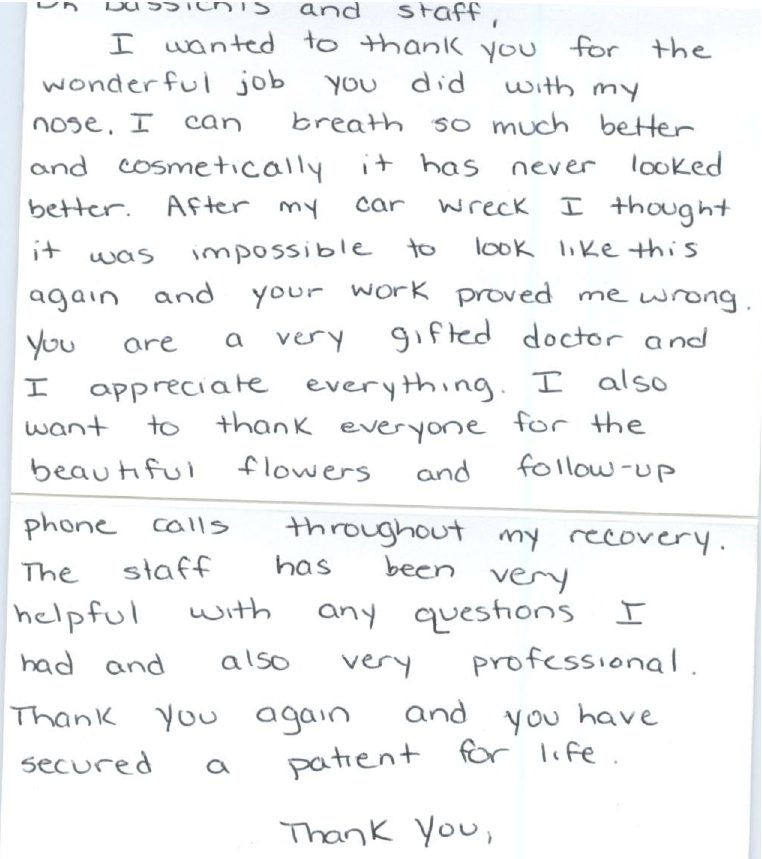 and staff,
I wanted to thank you for the
wonderful job you did with my
nose. I can breath so much better
and cosmetically it has never looked
better. After my car wreck I thought
it was impossible to look like this
again and your work proved me wrong.
You are a very gifted doctor and
I appreciate everything. I also
want to thank everyone for the
beautiful flowers and follow-up
phone calls throughout my recovery.
The staff has been very
helpful with any questions I
had and also very professional.
Thank you again and you have
secured a patient for life.
Thank You,